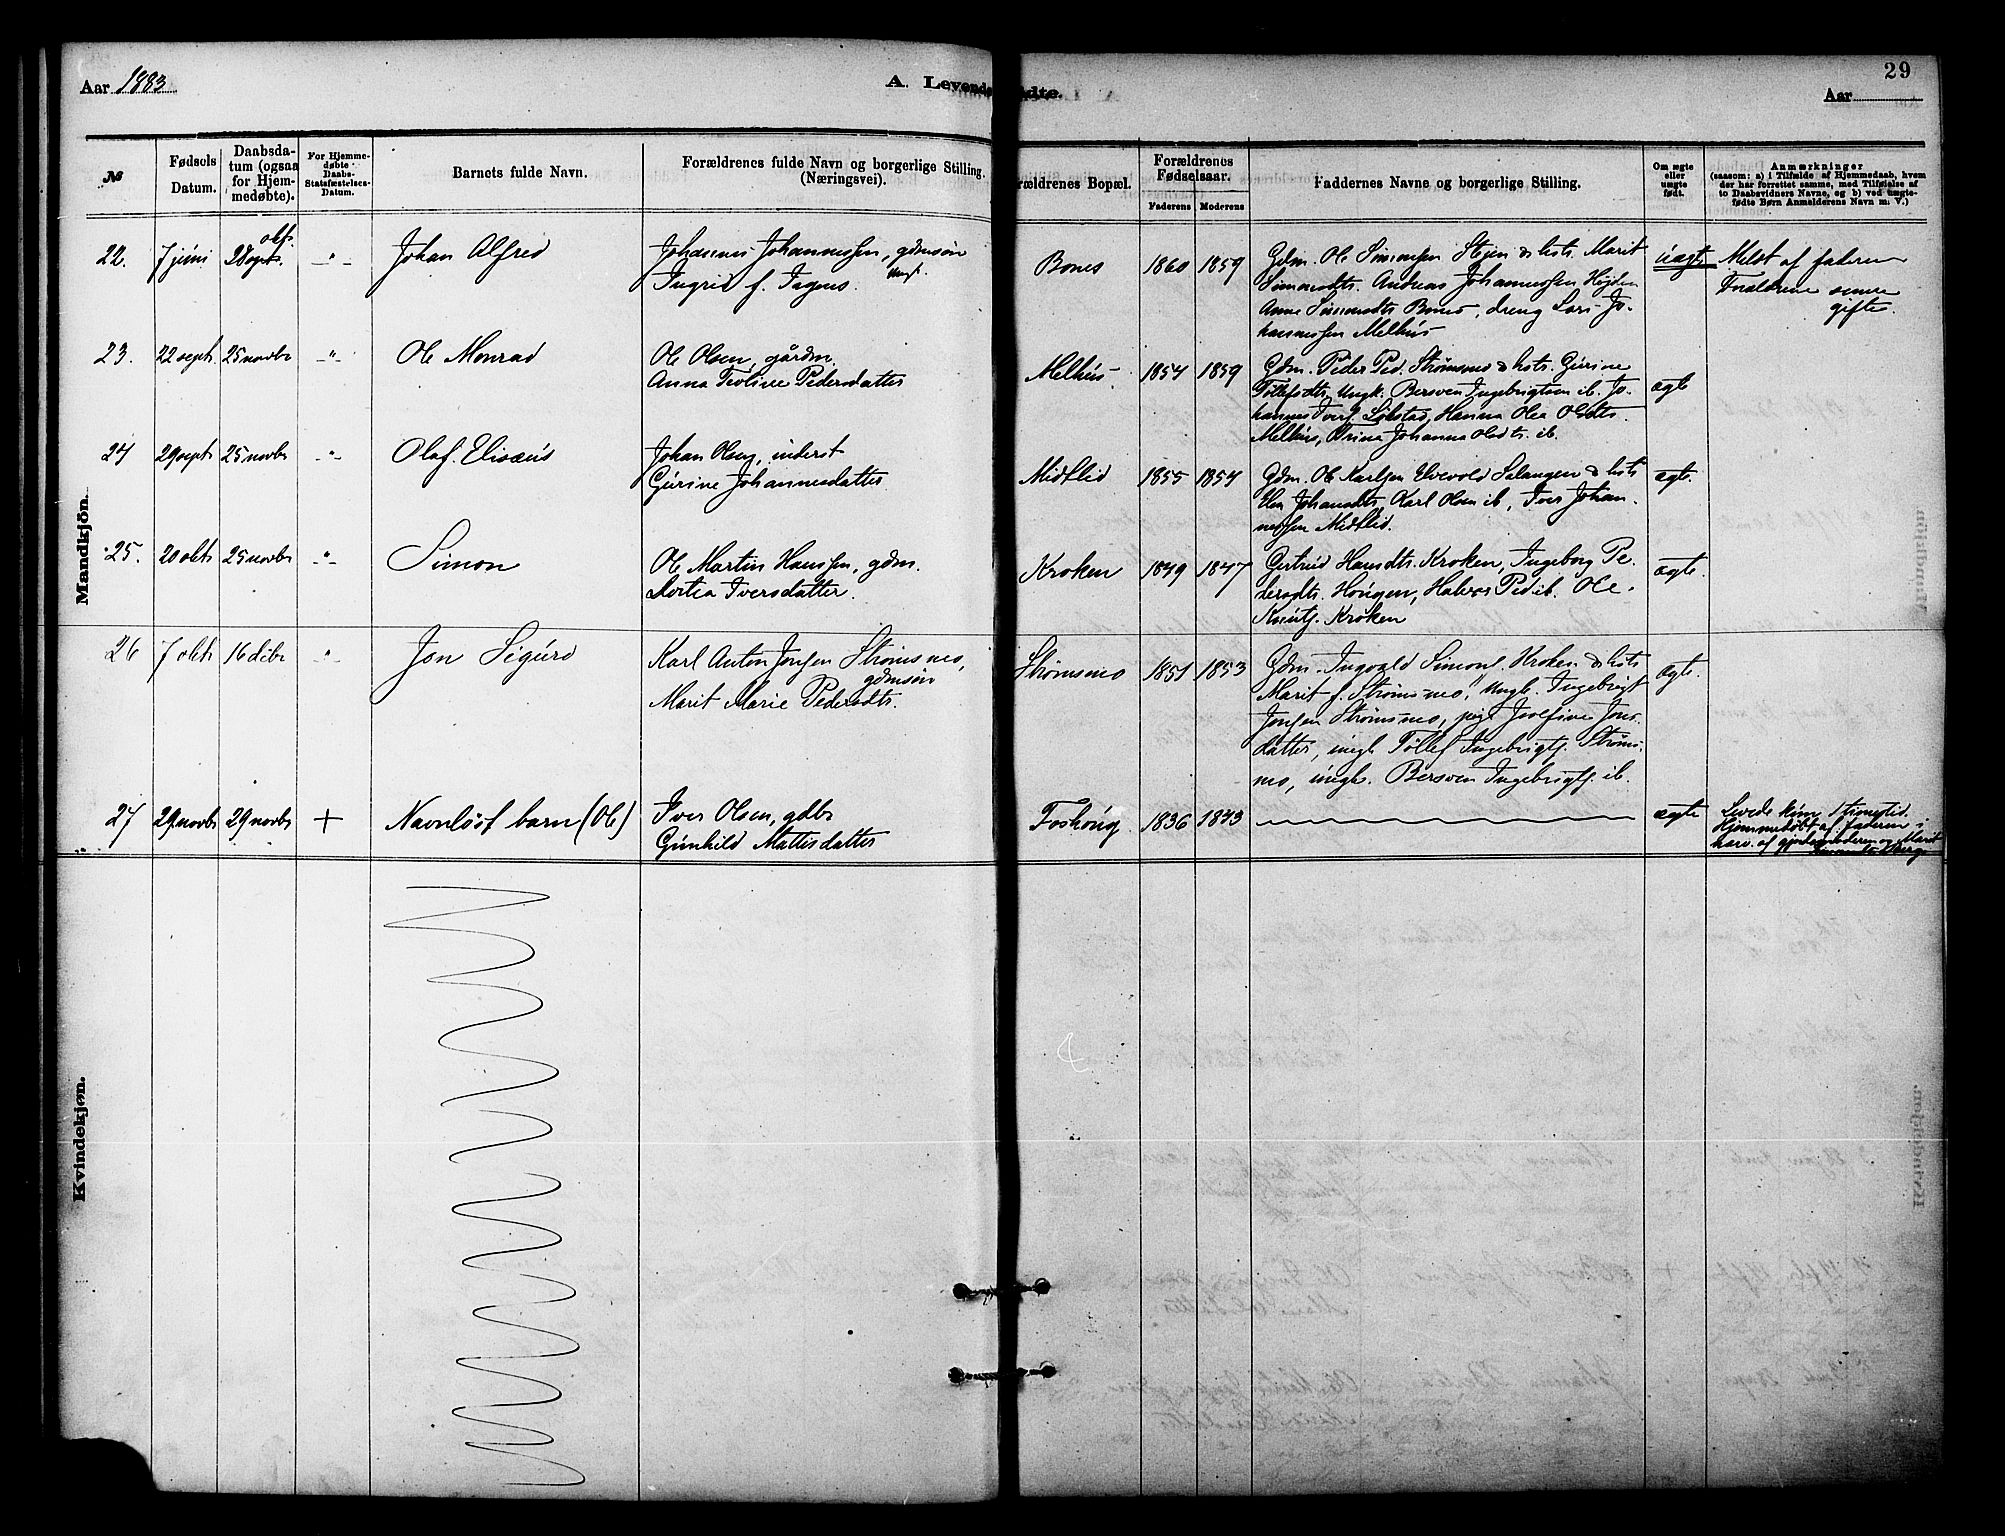 Aar 1883
A. Levende
dte.
29
Aar
№
Fødsels Datum.
Daabsda-
tum (ogsaa
for Hjem-
medøbte).
For Hjemme-
døbte
Daabs-
Stadfæstelses-
Datum.
Barnets fulde Navn.
Forældrenes fulde Navn og borgerlige Stilling.
(Næringsvei).
rældrenes Bopæl.
Forældrenes
Fødselsaar.
Faderens Moderens
Faddernes Navne og borgerlige Stilling.
Om ægte
eller
uægte
født.
Anmærkninger
(saasom: a) i Tilfælde af Hjemmedaab, hvem
der har forrettet samme, med Tilføielse af
to Daabsvidners Navne, og b) ved uægte-
fødte Børn Anmelderens Navn m. V.)
Mandkjön.
22. 7 juni 28 sept. okt. " Johan Alfred
Johannes Johannessen, gdmsøn
Ingrid f. ungk.
Bones 1860 1859
Gdm. Ole Simonsen Stjen & hstr. Marit
Simonsdtr. Andreas Johannessen Højden
Anne Simonsdtr Bones, dreng Lars Jo-
hannessen Melhus
uægte
Meldt af faderen
Forældrene senere
gifte.
23. 22 sept. 25 novbr " Ole Monrad
Ole Olsen, gårdm
Anna Teoline Pedersdatter
Melhus. 1854 1859
Gdm. Peder Ped. Strømsmo & hstr. Gurine
Tollefsdtr, Ungk. Bersven Ingebrigtsen ib. Jo-
hannes Iversf. Løkstad, Hanna Olea Olsdtr.
Melhus, Trina Johanna Olsdtr. ib.
ægte
24 29 sept 25 novbr " Olaf Elisæus
Johan Olsen, inderst
Gurine Johannesdatter
Midtlid 1855 1854
Gdm. Ole Karlsen Elvevold Salangen & hstr
Johansdtr, Karl Olsen ib, Iver Johan-
nessen Midtlid.
ægte.
25. 20 okt 25 novbr " Simon
Ole Martin Hanssen, gdm.
Dortea Iversdatter.
Kroken 1849 1847
Gertrud Hansdtr. Kroken, Ingeborg Pe-
dersdtr. Høngen, Halvor Ped ib. Ole
Knutf. Kroken
ægte.
26 7 okt 16 debr " Jon Sigurd
Karl Anton Jonsen Strømsmo,
gdmsøn
Marit Marie Pedersdtr.
Strømsmo 1851 1853
Gdm. Ingvald Simons. Kroken & hstr
Marit f. Strømsmo, Ungk. Ingebrigt
Jonsen Strømsmo, pige Josefine Jons-
datter, ungk Tollef Ingebrigtf. Strøms-
mo, ungk. Bersven Ingebrigtf. ib.
ægte.
27 29 novbr 29 novbr + Navnløst barn (Ole)
Iver Olsen, gdbr
Gunhild Mattisdatter
Foshoug. 1836 1843
ægte
Levede kun 1 timestid.
Hjemmedøbt af faderen i
nærv. af gjordemoderen og Marit
Kvindekjøn.